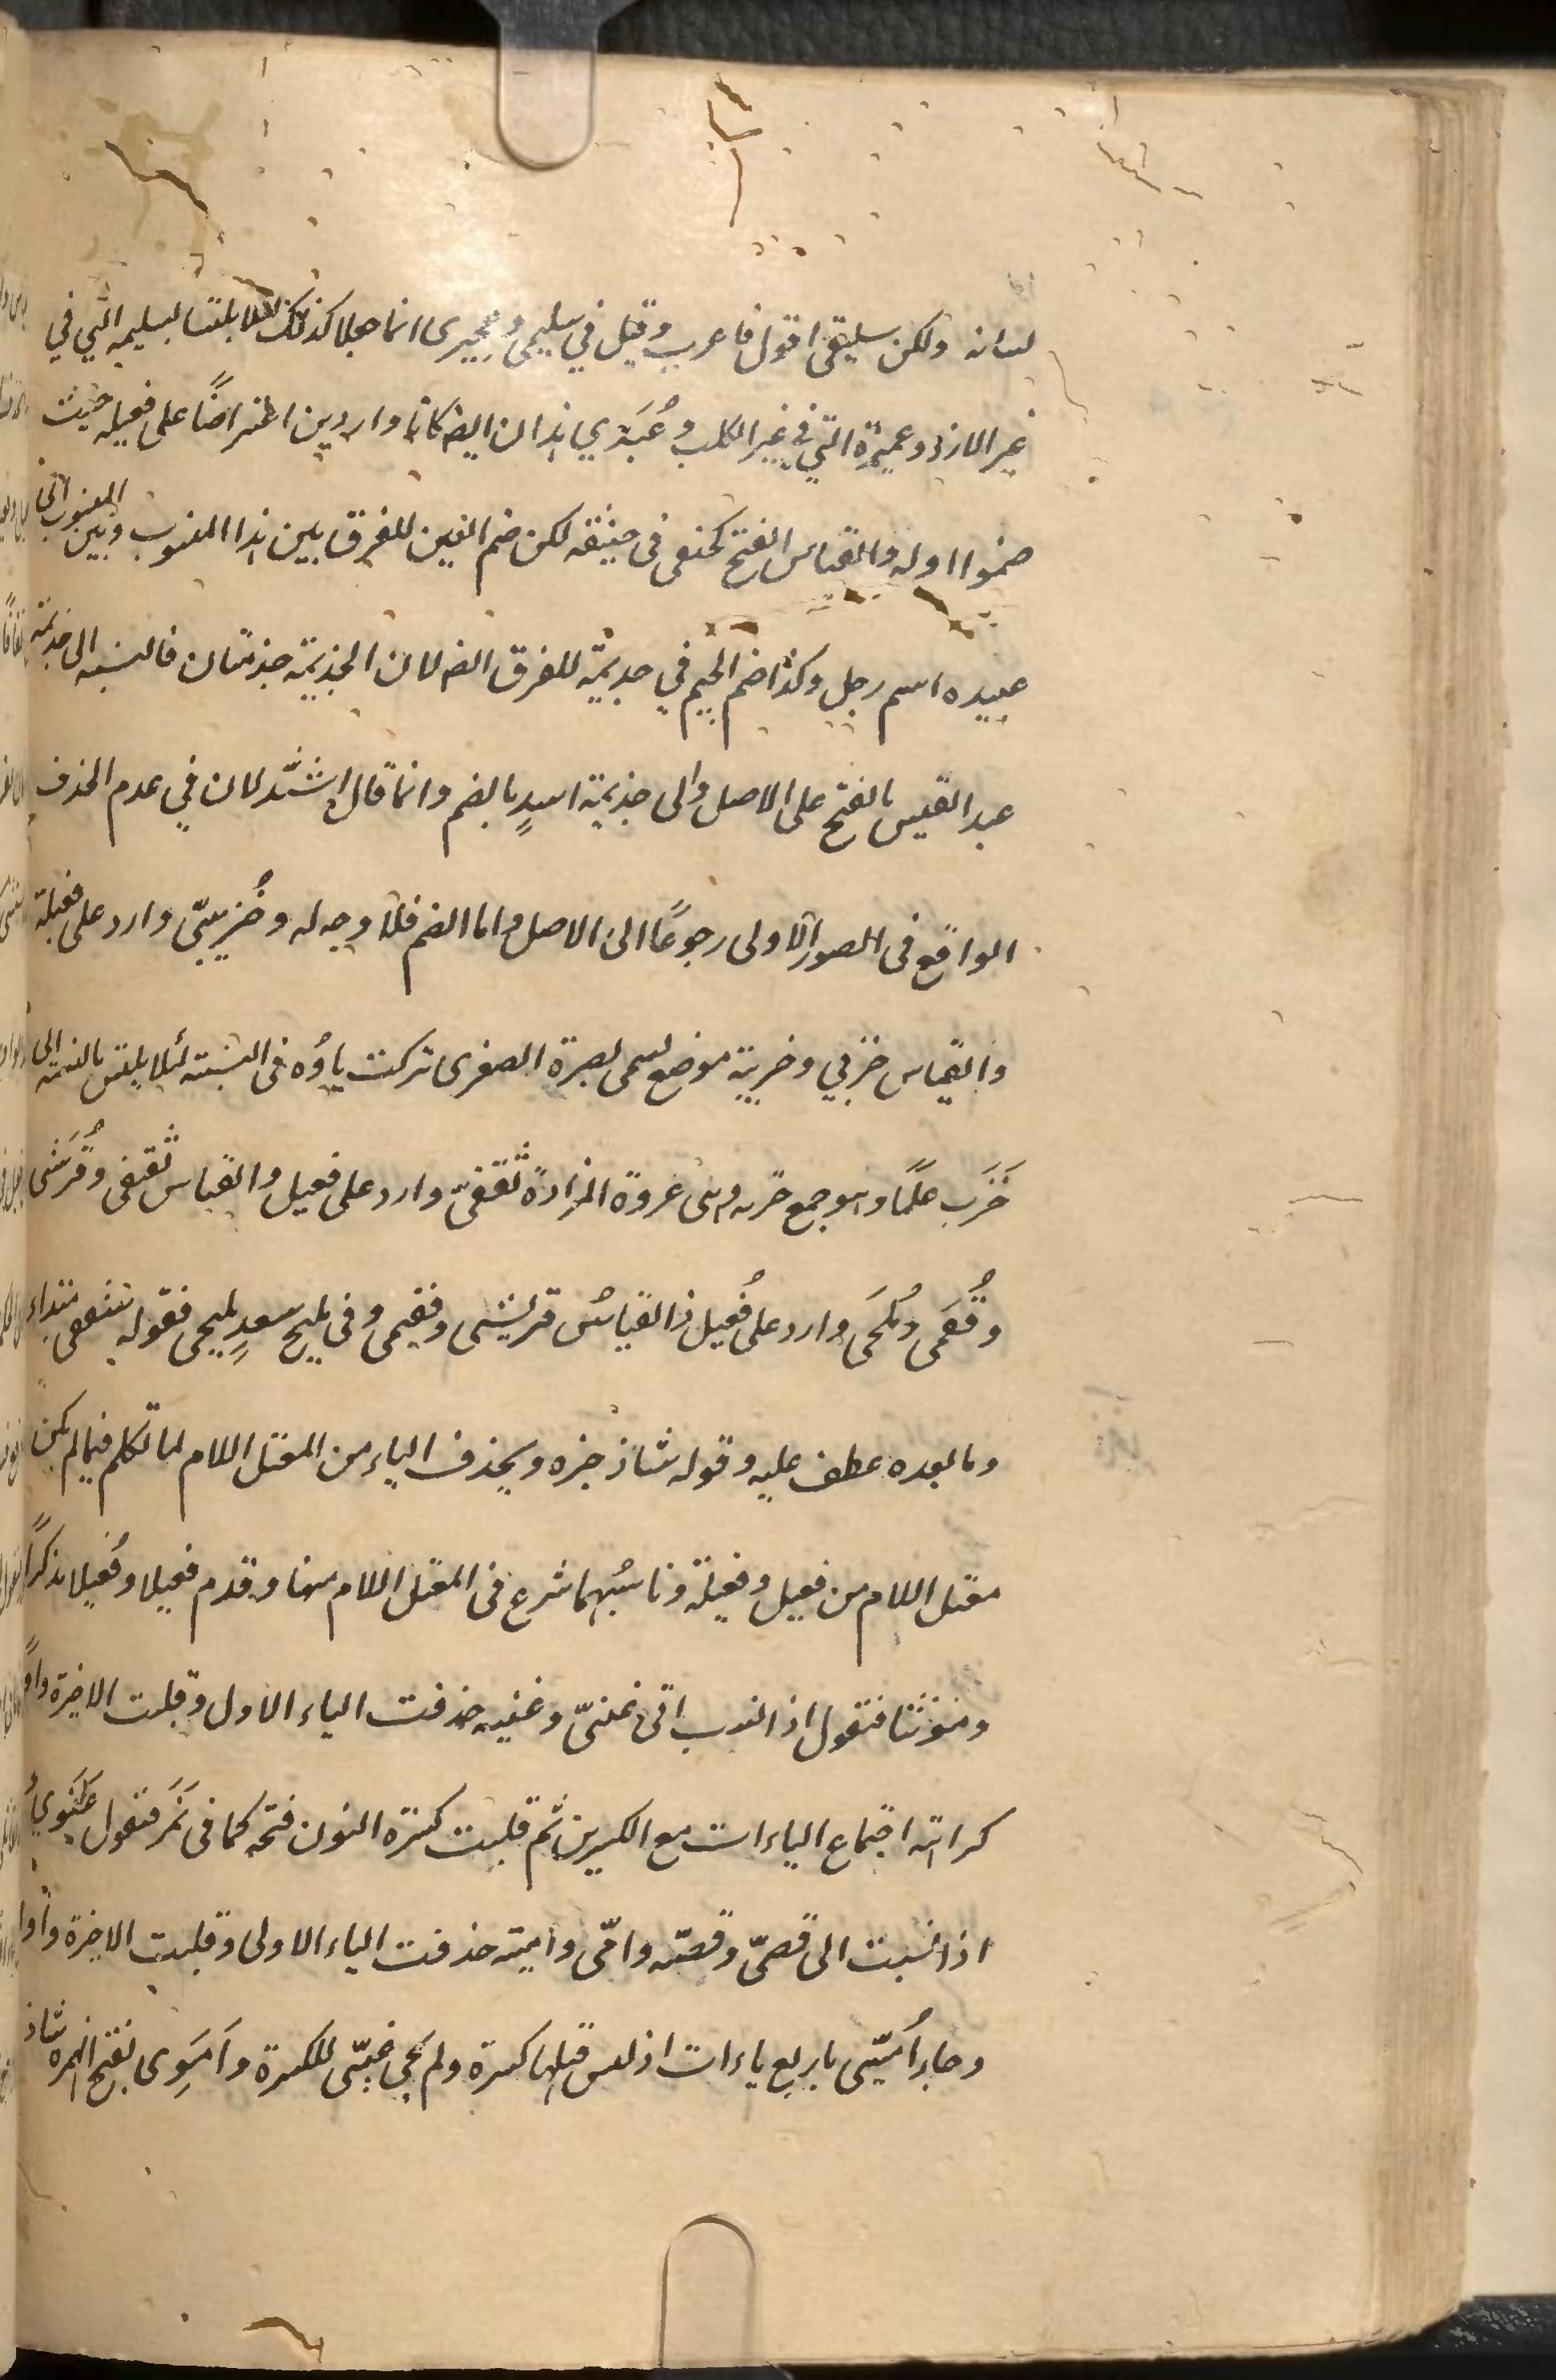 لسانه ولكن سليقي اقول فاعرب وقيل في سليمى وعميرى انما جعلا كذلك لئلا يلتبسا بسليمه التي في
غير الازد وعميرة التي في غير الكلب وعُبَدي هذان ايضا كانا واردين اعتراضًا على فعيله حيث
ضموا اوله والقياس الفتح كحنفى فى حنيفه لكن ضم العين للفرق بين هذا المنسوب وبين المنسوب الى
عبيده اسم رجل وكذا ضم الجيم في جديمة للفرق ايضا لان الجذيمة جذمتان فالنسبه الى جذيمة
عبد القيس بالفتح على الاصل والى جذيمة اسدٍ بالضم وانما قال اشَّذ لان في عدم الحذف
الواقع فى الصور الاولى رجوعًا الى الاصل واما الضم فلا وجه له وخُزيبىّ وارد على فعيلة
والقياس خزبي وخريبة موضع يسمى بصرة الصغرى تركت ياؤه فى النسبته لئلا يلتبس بالنسبه الى
خَرَب علمًا وهو جمع خربه وهى عروة المزادة ثقفىّ وارد على فعيل والقياس ثقيفى وقُرَشى
وفُقَمى ومُلَحَى وارد على فُعيل فالقياس قريشى وفقيمى وفى مليح سعدٍ مليحى فقوله ثقفى مبتداء
وما بعده عطف عليه وقوله شاذ خبره ويحذف الياء من المعتل اللام لما تكلم فيما لم يكن
معتل اللام من فعيل وفعيلة وناسبهما شرع فى المعتل اللام منها وقدم فعيلا وفُعيلا مذكرًا
ومؤنثا فتقول اذا نسب الى غنىّ وغنيه حذفت الياء الاول وقلبت الاخيرة واوًا
كراهته اجتماع الياءات مع الكسرين ثم قلبت كسرة النون فتحه كما فى نَمَر فتقول غَنَويُ
اذا نسبت الى قصىّ وقصيه وامّى واميته حذفت الياء الاولى وقلبت الاخيرة واوا
وجاء اُمَيّيى باربع ياءات اذ ليس قبلها كسرة ولم يجى غنيّى للكسرة واَمَوِى بفتح الهمزه شاذ